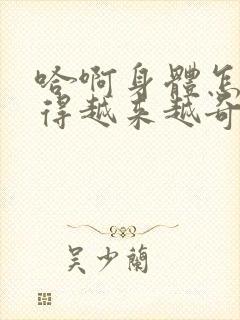 哈啊身體怎
得越来越奇
吴少蘭